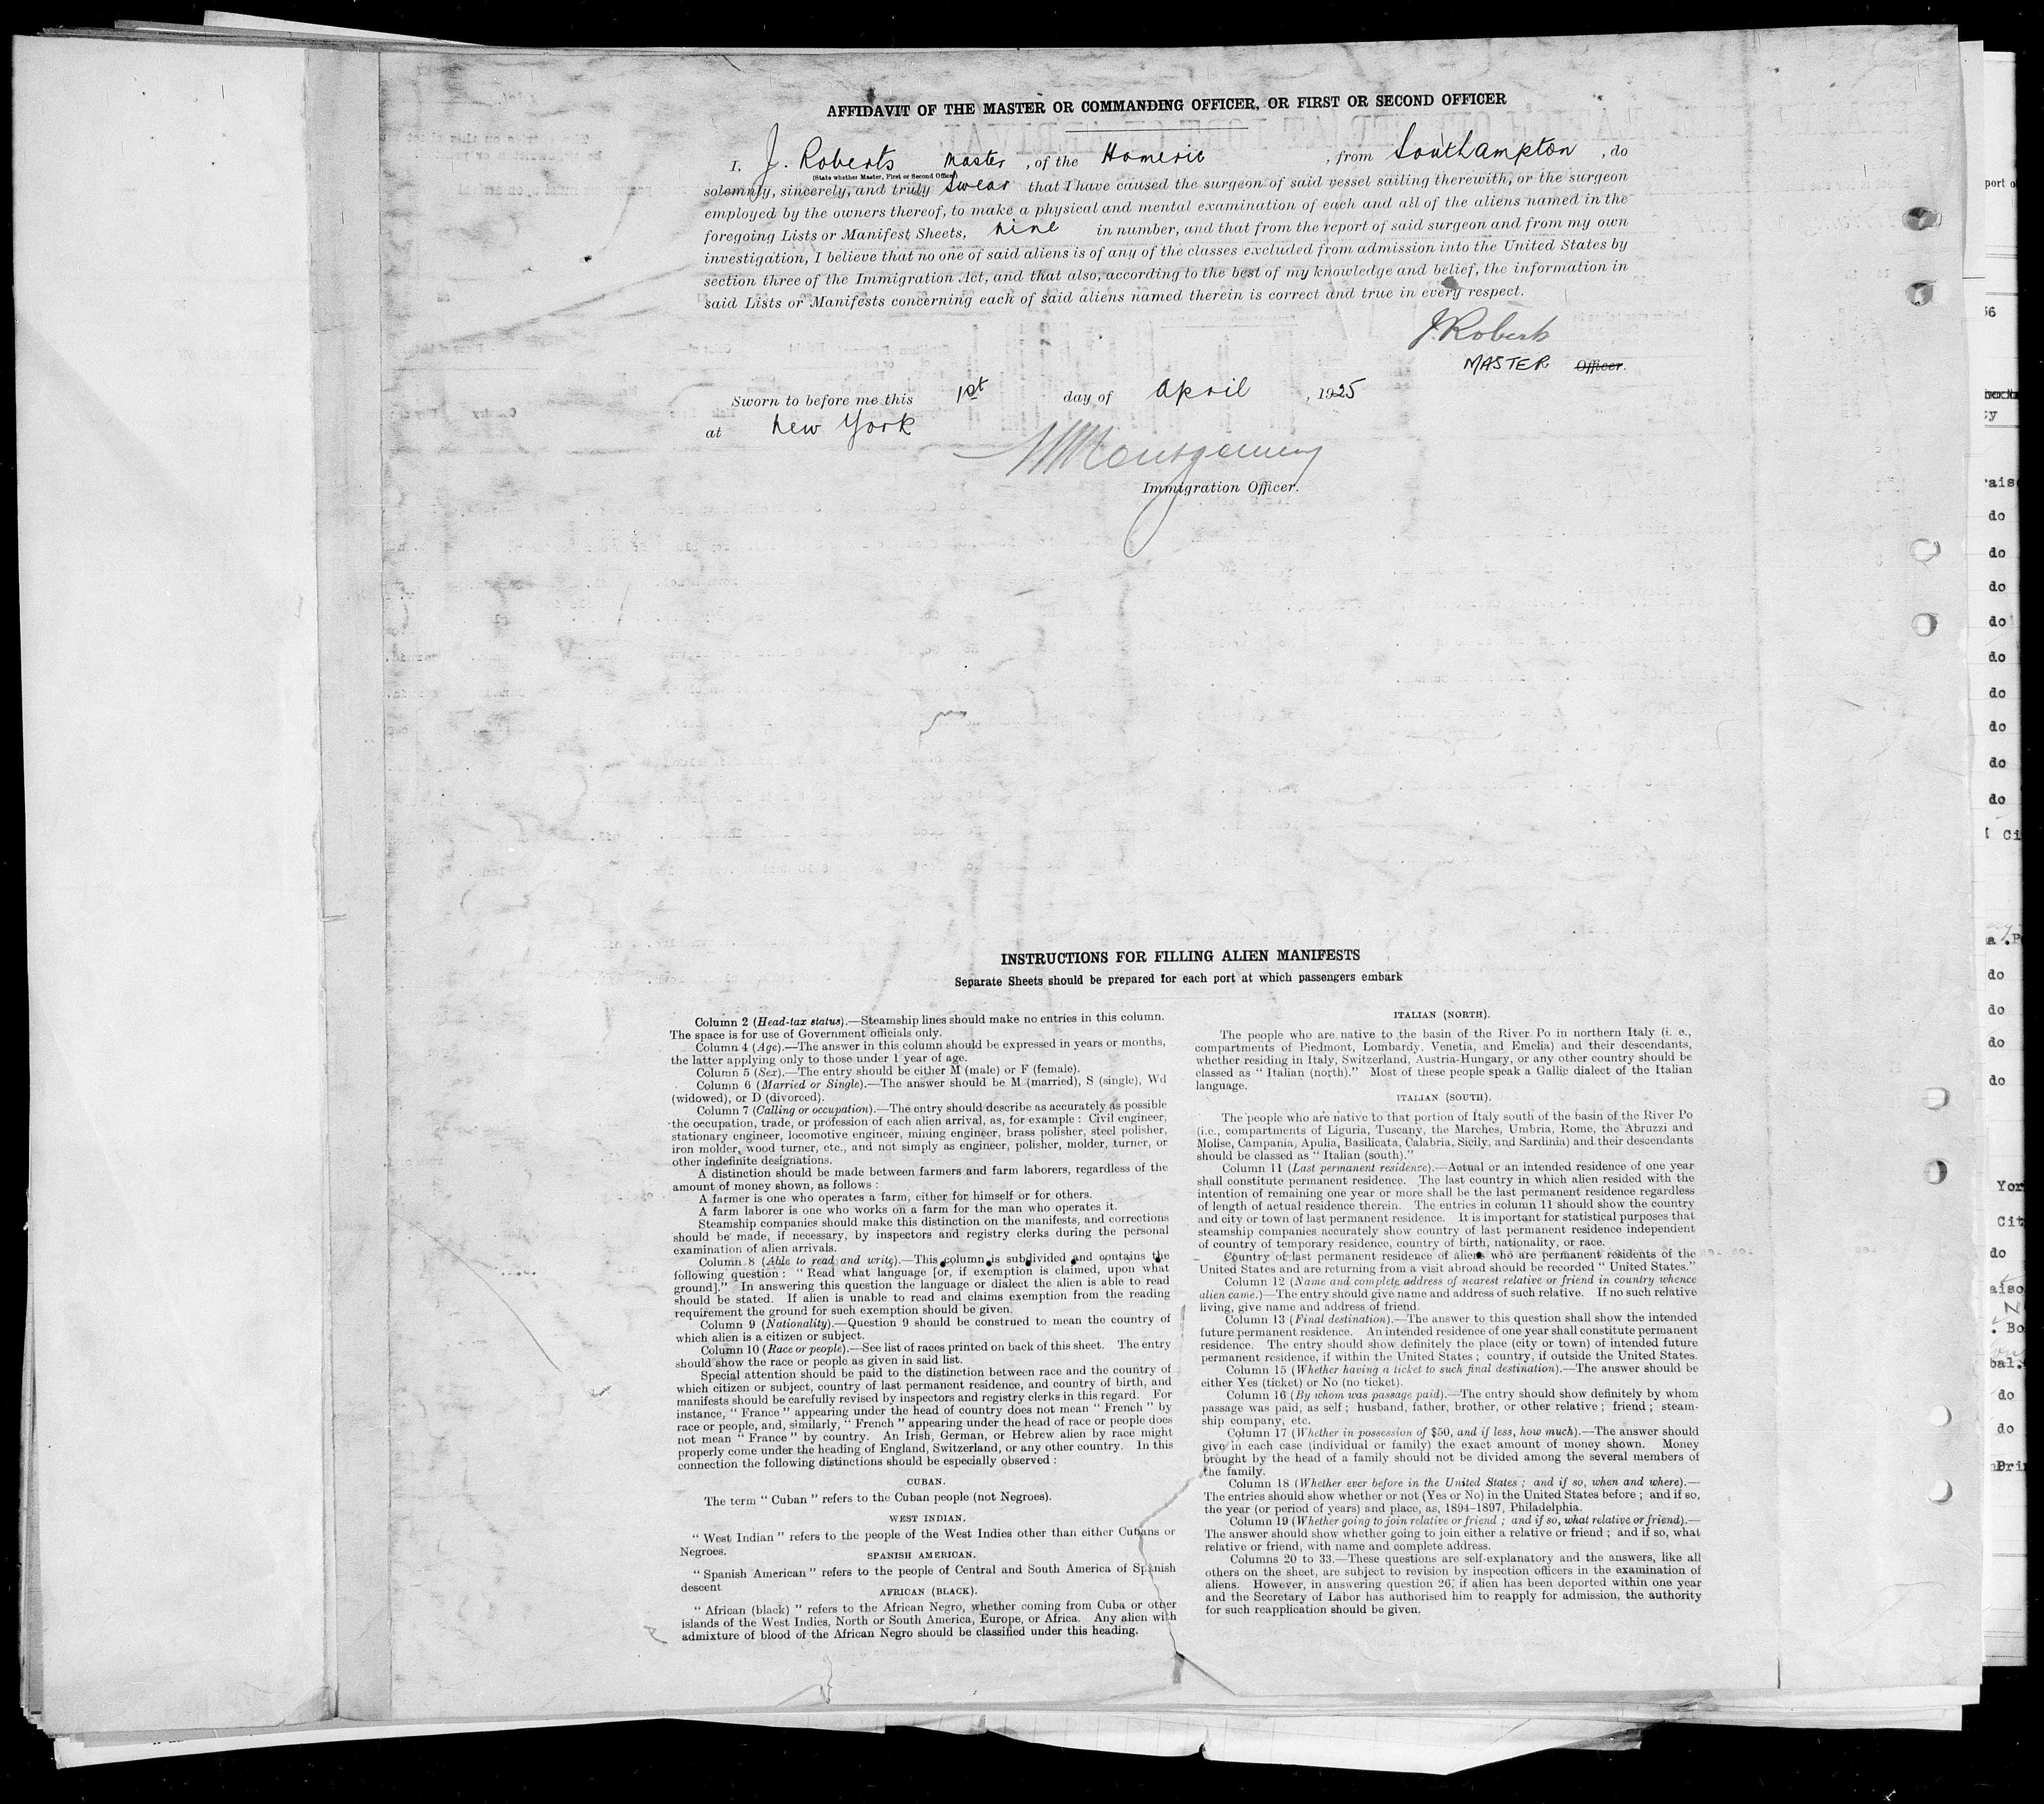 AFFIDAVIT OF THE MASTER OR COMMANDING OFFICER, OR FIRST OR SECOND OFFICER
I, J. Roberts Master, of the Homeric, from Southampton, do
(State whether Master, First or Second Officer)
solemnly, sincerely, and truly swear that I have caused the surgeon of said vessel sailing therewith, or the surgeon
employed by the owners thereof, to make a physical and mental examination of each and all of the aliens named in the
foregoing Lists or Manifest Sheets, nine in number, and that from the report of said surgeon and from my own
investigation, I believe that no one of said aliens is of any of the classes excluded from admission into the United States by
section three of the Immigration Act, and that also, according to the best of my knowledge and belief, the information in
said Lists or Manifests concerning each of said aliens named therein is correct and true in every respect.
J. Roberts
MASTER Officer.
Sworn to before me this 1st day of April, 1925
at New York
Montgomery
Immigration Officer.
INSTRUCTIONS FOR FILLING ALIEN MANIFESTS
Separate Sheets should be prepared for each port at which passengers embark
Column 2 (Head-tax status).—Steamship lines should make no entries in this column.
The space is for use of Government officials only.
Column 4 (Age).—The answer in this column should be expressed in years or months,
the latter applying only to those under 1 year of age.
Column 5 (Sex).—The entry should be either M (male) or F (female).
Column 6 (Married or Single).—The answer should be M (married), S (single), Wd
(widowed), or D (divorced).
Column 7 (Calling or occupation).—The entry should describe as accurately as possible
the occupation, trade, or profession of each alien arrival, as, for example : Civil engineer,
stationary engineer, locomotive engineer, mining engineer, brass polisher, steel polisher,
iron molder, wood turner, etc., and not simply as engineer, polisher, molder, turner, or
other indefinite designations.
A distinction should be made between farmers and farm laborers, regardless of the
amount of money shown, as follows :
A farmer is one who operates a farm, either for himself or for others.
A farm laborer is one who works on a farm for the man who operates it.
Steamship companies should make this distinction on the manifests, and corrections
should be made, if necessary, by inspectors and registry clerks during the personal
examination of alien arrivals.
Column 8 (Able to read and write).—This column is subdivided and contains the
following question : “ Read what language [or, if exemption is claimed, upon what
ground].” In answering this question the language or dialect the alien is able to read
should be stated. If alien is unable to read and claims exemption from the reading
requirement the ground for such exemption should be given.
Column 9 (Nationality).—Question 9 should be construed to mean the country of
which alien is a citizen or subject.
Column 10 (Race or people).—See list of races printed on back of this sheet. The entry
should show the race or people as given in said list.
Special attention should be paid to the distinction between race and the country of
which citizen or subject, country of last permanent residence, and country of birth, and
manifests should be carefully revised by inspectors and registry clerks in this regard. For
instance, “ France ” appearing under the head of country does not mean “ French ” by
race or people, and, similarly, “ French ” appearing under the head of race or people does
not mean “ France ” by country. An Irish, German, or Hebrew alien by race might
properly come under the heading of England, Switzerland, or any other country. In this
connection the following distinctions should be especially observed :
CUBAN.
The term “ Cuban ” refers to the Cuban people (not Negroes).
WEST INDIAN.
“ West Indian ” refers to the people of the West Indies other than either Cubans or
Negroes.
SPANISH AMERICAN.
“ Spanish American ” refers to the people of Central and South America of Spanish
descent
AFRICAN (BLACK).
“ African (black) ” refers to the African Negro, whether coming from Cuba or other
islands of the West Indies, North or South America, Europe, or Africa. Any alien with
admixture of blood of the African Negro should be classified under this heading.
ITALIAN (NORTH).
The people who are native to the basin of the River Po in northern Italy (i. e.,
compartments of Piedmont, Lombardy, Venetia, and Emelia) and their descendants,
whether residing in Italy, Switzerland, Austria-Hungary, or any other country should be
classed as “ Italian (north).” Most of these people speak a Gallic dialect of the Italian
language.
ITALIAN (SOUTH).
The people who are native to that portion of Italy south of the basin of the River Po
(i.e., compartments of Liguria, Tuscany, the Marches, Umbria, Rome, the Abruzzi and
Molise, Campania, Apulia, Basilicata, Calabria, Sicily, and Sardinia) and their descendants
should be classed as “ Italian (south).”
Column 11 (Last permanent residence).—Actual or an intended residence of one year
shall constitute permanent residence. The last country in which alien resided with the
intention of remaining one year or more shall be the last permanent residence regardless
of length of actual residence therein. The entries in column 11 should show the country
and city or town of last permanent residence. It is important for statistical purposes that
steamship companies accurately show country of last permanent residence independent
of country of temporary residence, country of birth, nationality, or race.
Country of last permanent residence of aliens who are permanent residents of the
United States and are returning from a visit abroad should be recorded “ United States.”
Column 12 (Name and complete address of nearest relative or friend in country whence
alien came.)—The entry should give name and address of such relative. If no such relative
living, give name and address of friend.
Column 13 (Final destination).—The answer to this question shall show the intended
future permanent residence. An intended residence of one year shall constitute permanent
residence. The entry should show definitely the place (city or town) of intended future
permanent residence, if within the United States ; country, if outside the United States.
Column 15 (Whether having a ticket to such final destination).—The answer should be
either Yes (ticket) or No (no ticket).
Column 16 (By whom was passage paid).—The entry should show definitely by whom
passage was paid, as self ; husband, father, brother, or other relative ; friend ; steam-
ship company, etc.
Column 17 (Whether in possession of $50, and if less, how much).—The answer should
give in each case (individual or family) the exact amount of money shown. Money
brought by the head of a family should not be divided among the several members of
the family.
Column 18 (Whether ever before in the United States ; and if so, when and where).—
The entries should show whether or not (Yes or No) in the United States before ; and if so,
the year (or period of years) and place, as, 1894–1897, Philadelphia.
Column 19 (Whether going to join relative or friend ; and if so, what relative or friend).—
The answer should show whether going to join either a relative or friend ; and if so, what
relative or friend, with name and complete address.
Columns 20 to 33.—These questions are self-explanatory and the answers, like all
others on the sheet, are subject to revision by inspection officers in the examination of
aliens. However, in answering question 26, if alien has been deported within one year
and the Secretary of Labor has authorised him to reapply for admission, the authority
for such reapplication should be given.